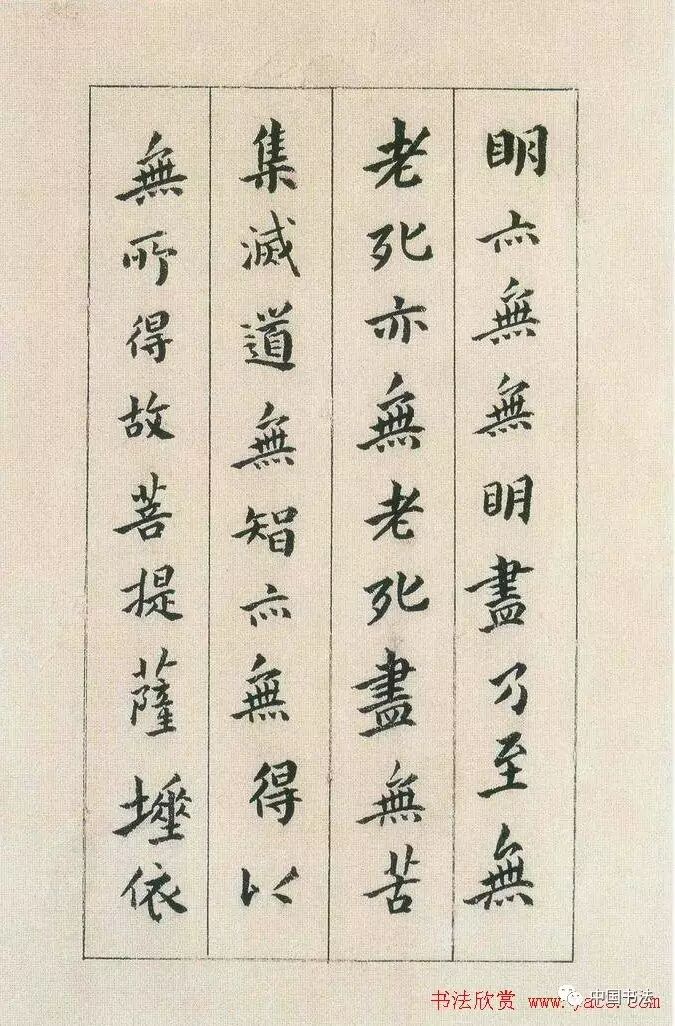 明亦無無明盡乃至無
老死亦無老死盡無苦
集滅道無智亦無得以
無所得故菩提薩埵依
书法欣赏
中国书法